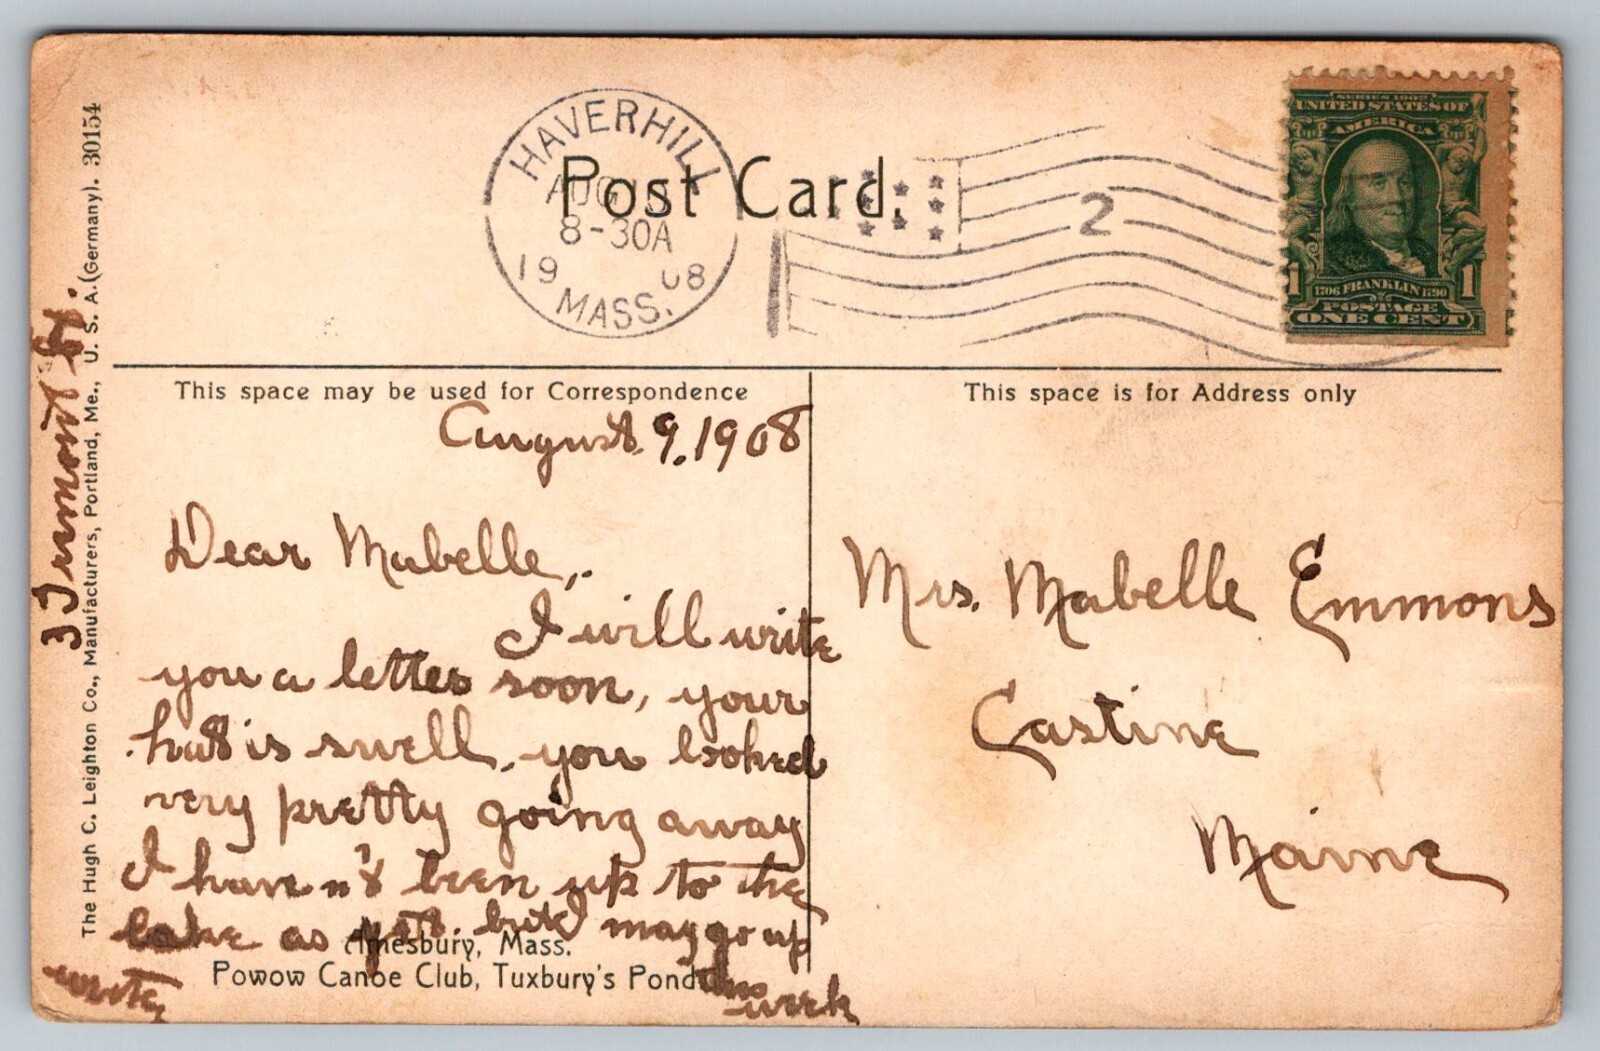 HAVERHILL
AUG
8-30A
19 08
MASS.
2
Post Card.
SERIES 1902
UNITED STATES OF
AMERICA
1706 FRANKLIN 1790
1 1
POSTAGE
ONE CENT
This space may be used for Correspondence
This space is for Address only
August. 9. 1908
Dear Mabelle,.
I will write
you a letter soon, your
hat is swell, you looked
very pretty going away
I haven't been up to the
lake as yet. but may go up
this
week
write
3 Tremont St.
Mrs. Mabelle Emmons
Castine
Maine
Amesbury, Mass.
Powow Canoe Club, Tuxbury's Pond
The Hugh C. Leighton Co., Manufacturers, Portland, Me., U. S. A. (Germany). 30154